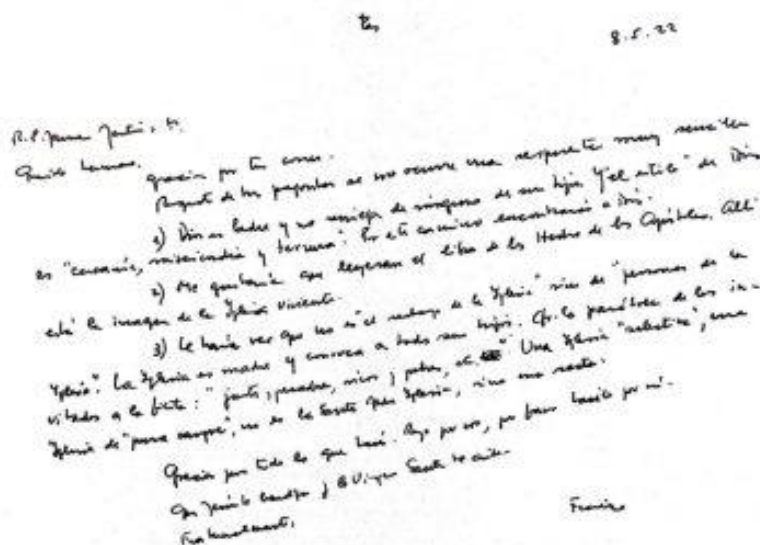 8.5.22
R.P. James Martin, sj.
Querido hermano,
gracias por tu correo.
Respecto de tus preguntas se me ocurre una respuesta muy sencilla
1) Dios es Padre y no reniega de ninguno de sus hijos. Y "el estilo" de Dios
es "cercanía, misericordia y ternura". Por este camino encontrarás a Dios.
2) Me gustaría que leyeran el libro de los Hechos de los Apóstoles. Allí
está la imagen de la Iglesia viviente.
3) Le haría ver que no es "el rechazo de la Iglesia" sino de "personas de la
Iglesia". La Iglesia es madre y convoca a todos sus hijos. Cfr. la parábola de los in-
vitados a la fiesta: "justos, pecadores, ricos y pobres, etc." Una Iglesia "selectiva", una
Iglesia de "pura sangre", no es la Santa Madre Iglesia, sino una secta.
Gracias por todo lo que hacés. Rezo por vos, por favor hacelo por mí.
Que Jesús te bendiga y la Virgen Santa te cuide.
Fraternalmente,
Francisco